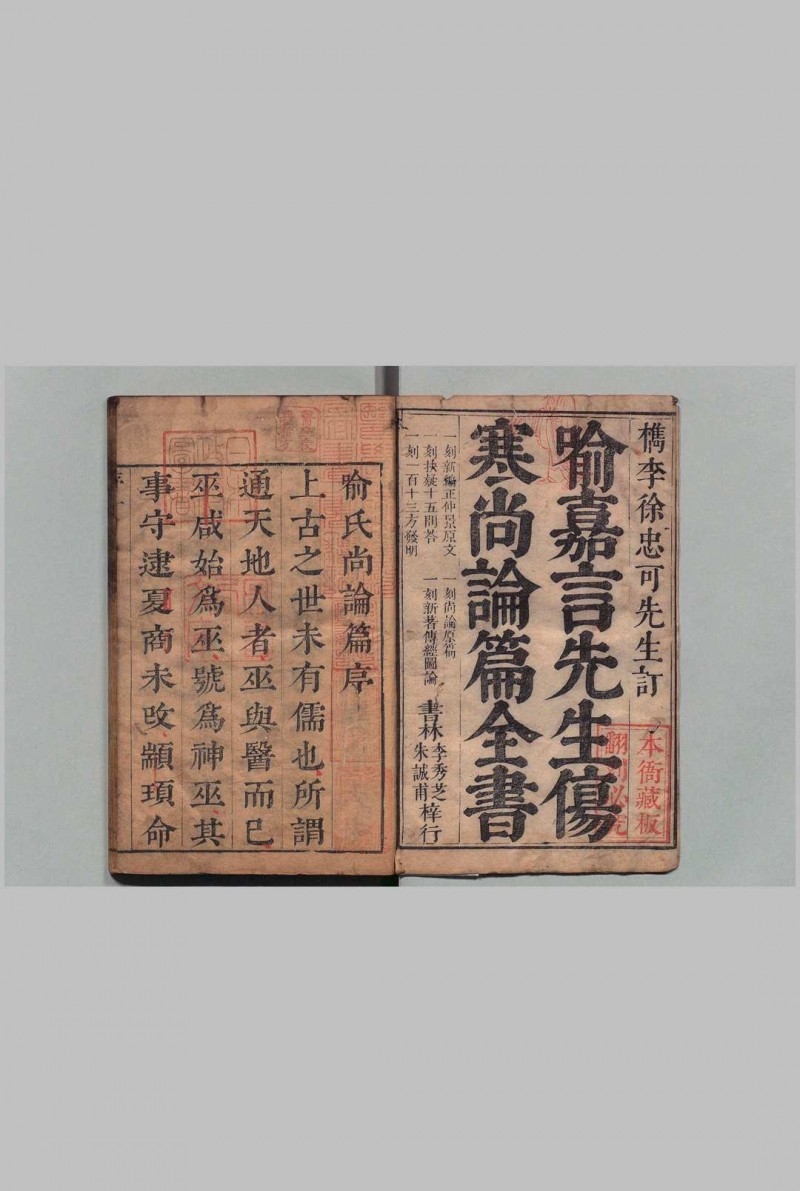 檇李徐忠可先生訂
喻嘉言先生傷
寒尚論篇全書
一刻新編正仲景原文
一刻尚論原篇
一刻抉疑十五問答
一刻新著傳經圖論
一刻一百十三方發明
書林李秀芝朱誠甫梓行
本衙藏板
翻刻必究
喻氏尚論篇序
上古之世未有儒也所謂
通天地人者巫與醫而已
巫咸始爲巫號爲神巫其
事守逮夏商未改顓頊命